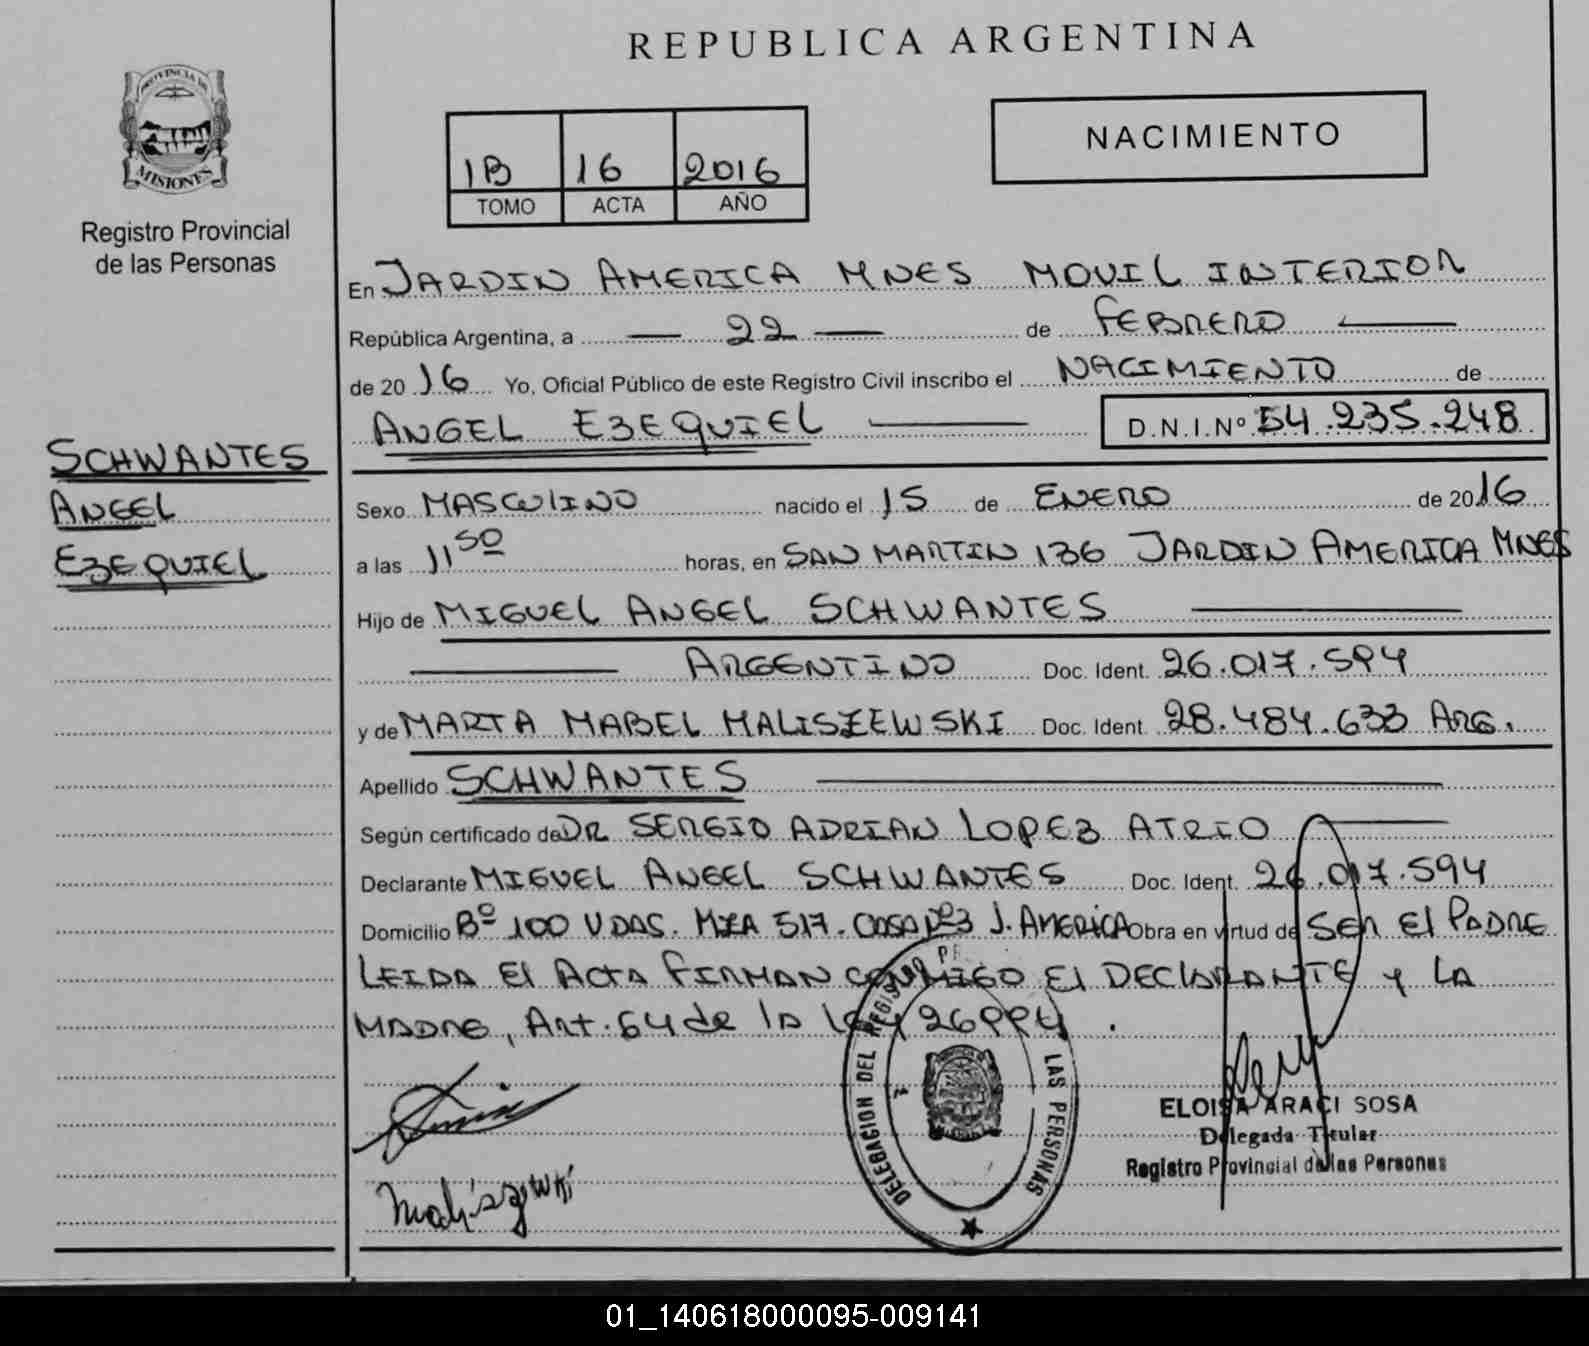 REPUBLICA ARGENTINA
PROVINCIA DE
MISIONES
Registro Provincial
de las Personas
1B 16 2016
TOMO ACTA AÑO
NACIMIENTO
En JARDIN AMERICA MNES MOVIL INTERIOR
República Argentina, a 22 de FEBRERO
de 2016 Yo, Oficial Público de este Registro Civil inscribo el NACIMIENTO de
ANGEL EZEQUIEL D.N.I.Nº 54.235.248
SCHWANTES
ANGEL
EZEQUIEL
Sexo MASCULINO nacido el 15 de ENERO de 2016
a las 11 50 horas, en SAN MARTIN 136 JARDIN AMERICA MNES
Hijo de MIGUEL ANGEL SCHWANTES
ARGENTINO Doc. Ident. 26.017.594
y de MARTA MABEL MALISZEWSKI Doc. Ident. 28.484.633 ARG.
Apellido SCHWANTES
Según certificado de DR SERGIO ADRIAN LOPEZ ATRIO
Declarante MIGUEL ANGEL SCHWANTES Doc. Ident. 26.017.594
Domicilio Bº 100 VDAS. MZA 517. CASA Nº3 J. AMERICA Obra en virtud de SER El PADRE
LEIDA El ACTA FIRMAN CONMIGO El DECLARANTE Y LA
MADRE, Art. 64 de la ley 26994.
DELEGACION DEL REGISTRO PR LAS PERSONAS
Maliszewski
ELOISA ARACI SOSA
Delegada Titular
Registro Provincial de las Personas
01_140618000095-009141